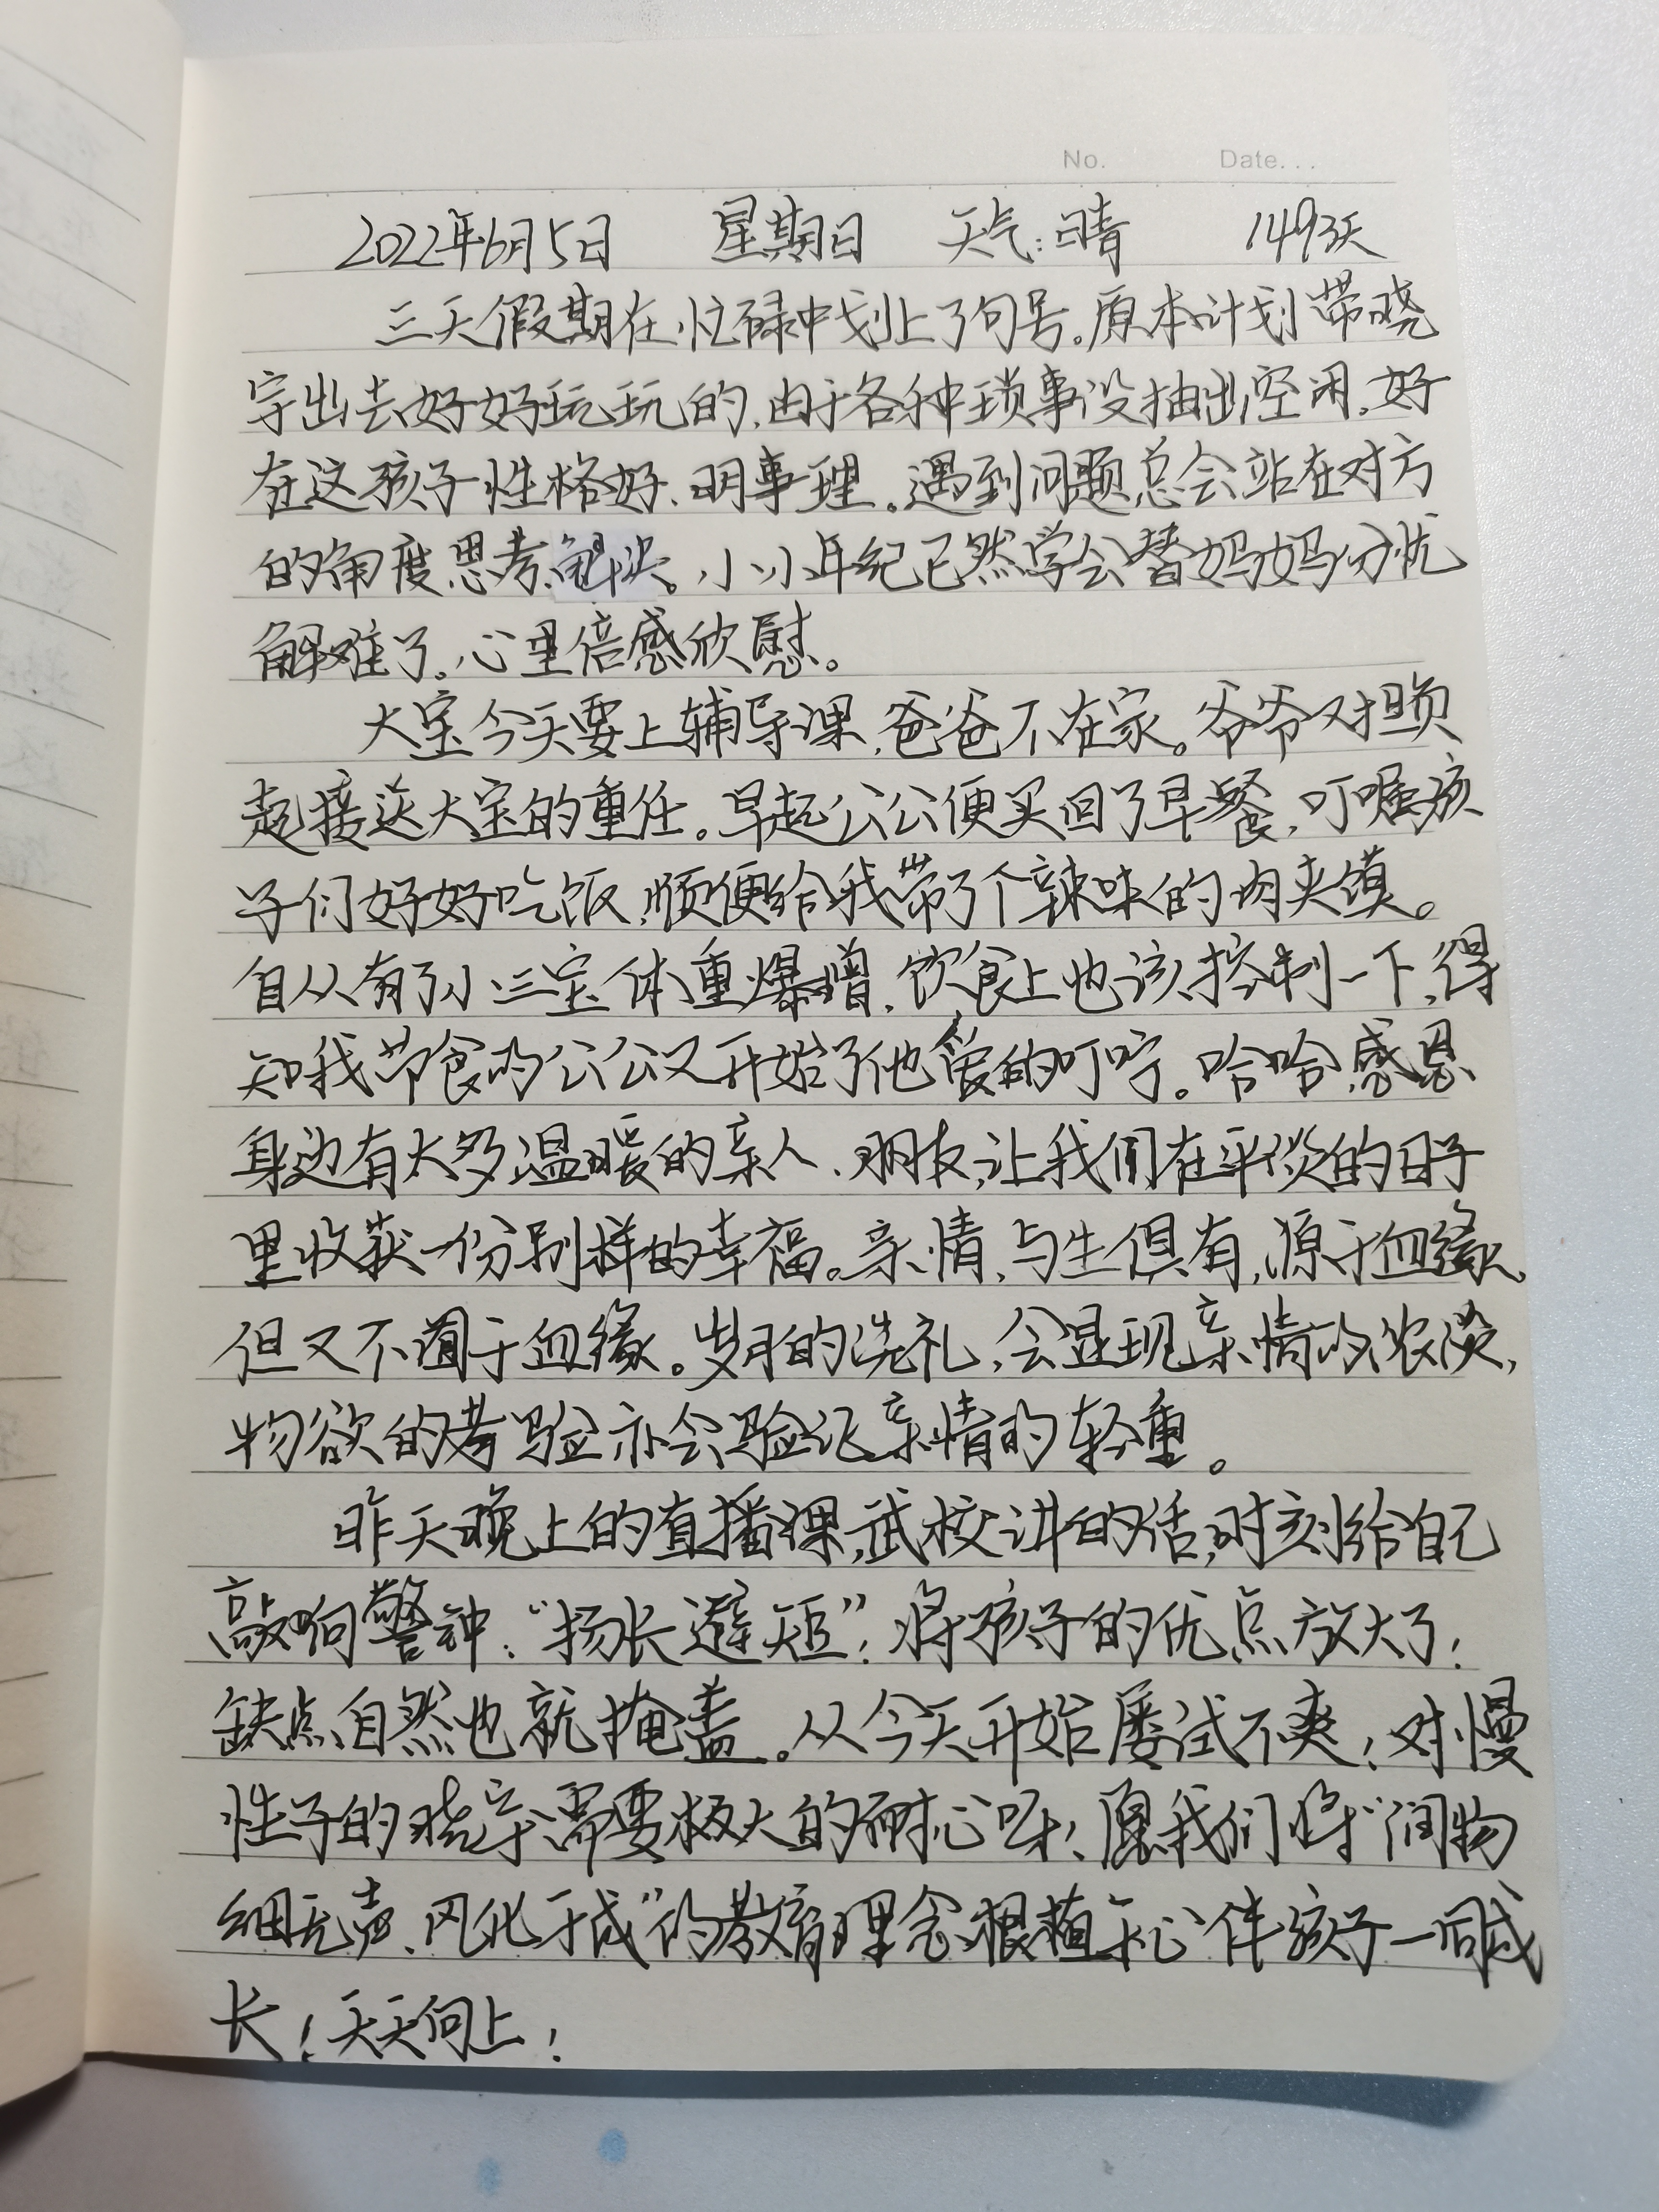 No. Date...
2022年6月5日 星期日 天气:晴 1493天
三天假期在忙碌中划上了句号。原本计划带晓
宇出去好好玩玩的,由于各种琐事没抽出空闲,好
在这孩子性格好、明事理。遇到问题总会站在对方
的角度思考、解决。小小年纪已然学会替妈妈分忧
解难了。心里倍感欣慰。
大宝今天要上辅导课,爸爸不在家。爷爷又担负
起接送大宝的重任。早起公公便买回了早餐,叮嘱孩
子们好好吃饭,顺便给我带了个辣味的肉夹馍。
自从有了小三宝体重爆增,饮食上也该控制一下,得
知我节食的公公又开始了他爱的叮咛。哈哈,感恩
身边有太多温暖的亲人、朋友,让我们在平淡的日子
里收获一份别样的幸福。亲情,与生俱有,源于血缘,
但又不囿于血缘。岁月的洗礼,会显现亲情的浓淡,
物欲的考验亦会验证亲情的轻重。
昨天晚上的直播课,武校讲的话,时刻给自己
敲响警钟:“扬长避短”!将孩子的优点放大了!
缺点自然也就掩盖。从今天开始屡试不爽!对慢
性子的晓宇需要极大的耐心呀!愿我们将“润物
细无声、风化于成”的教育理念根植于心伴孩子一同成
长!天天向上!